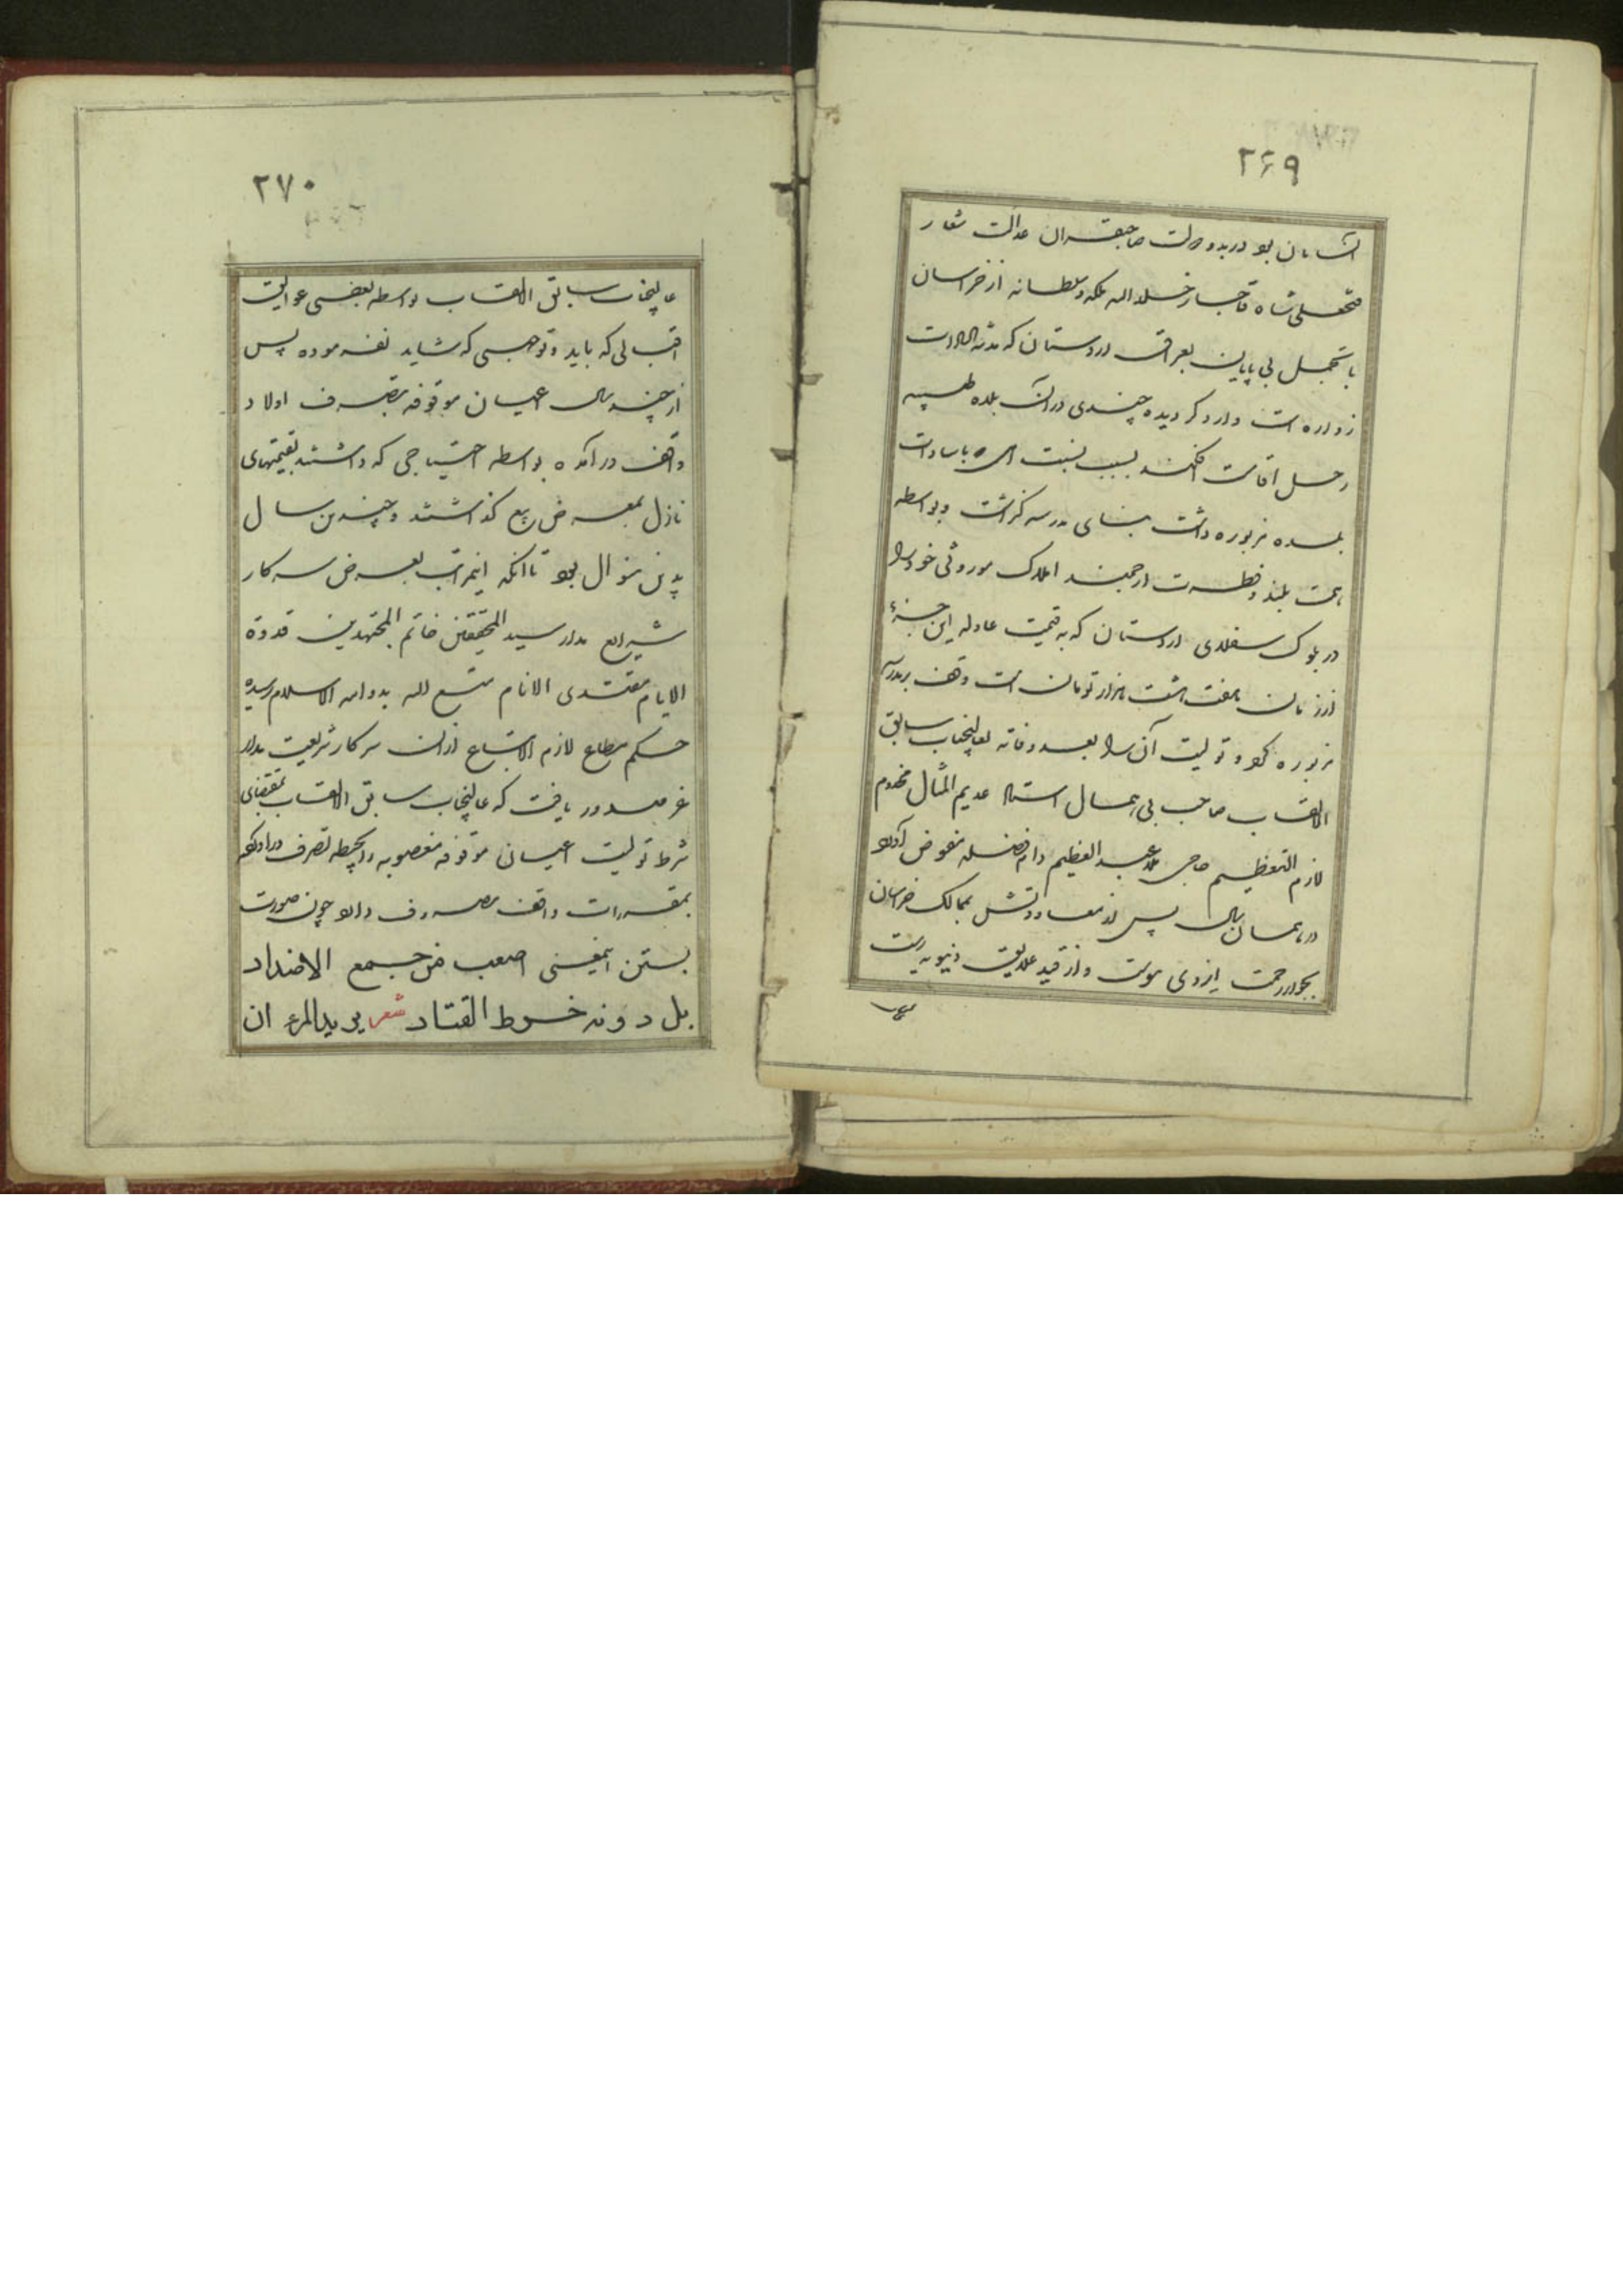 ۲۶۹
ایشان بود در بدو دولت صاحبقران عدالت شعار
فتحعلی شاه قاجار خلد الله ملکه و سلطانه از خراسان
با تجمل بی پایان بعراق اردستان که مدینة السادات
زواره است وارد گردیده چندی در آن بلده طیبه
رحل اقامت افکند بسبب نسبت که با سادات
بلده مزبوره داشت بنای مدرسه گذاشت و بواسطه
همت بلند و فطرت ارجمند املاک موروثی خود را
در بلوک سفلای اردستان که به قیمت عادله این جزء
از زمان هفت هشت هزار تومان است وقف بر مدرسه
مزبوره کرد و تولیت آن را بعد وفاته بعالیجناب سابق
الالقاب صاحب بی همال استاد عدیم المثال مخدوم
لازم التعظیم حاجی ملا عبد العظیم دام فضله مفوض آورد
در همان سال پس از معاودتش بممالک خراسان
بجوار رحمت ایزدی پیوست و از قید علایق دنیویه رست
۲۷۰
عالیجناب سابق الالقاب بواسطه بعضی عوایق
اقبالی که باید و توجهی که شاید نفرموده پس
از چند سال اعیان موقوفه بتصرف اولاد
واقف در آمده بواسطه احتیاجی که داشتند بقیمتهای
نازل بمعرض بیع گذاشتند و چندین سال
بدین منوال بود تا آنکه اینمراتب بعرض سرکار
شرایع مدار سید المحققین خاتم المجتهدین قدوة
الایام مقتدی الانام متع الله بدوامه الاسلام رسیده
حکم مطاع لازم الاتباع از آن سرکار شریعت مدار
عز صدور یافت که عالیجناب سابق الالقاب بمقتضای
شرط تولیت اعیان موقوفه مغصوبه را بحیطه تصرف در آورد
بمقررات واقف مصروف دارد چون صورت
بستن اینمعنی اصعب من جمع الاضداد
بل دونه خرط القتاد شعر یرید المرء ان